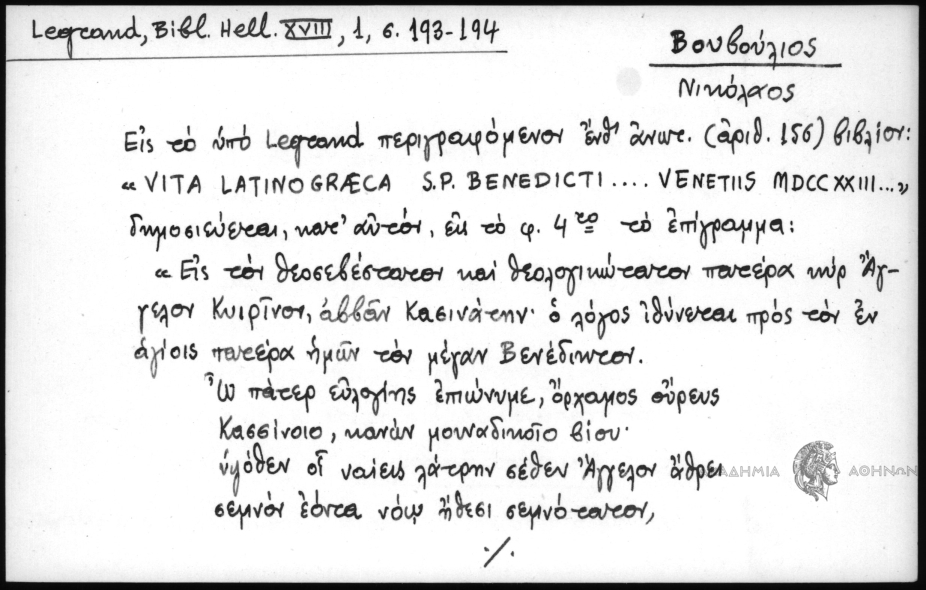 Legrand, Bibl. Hell. XVIII, 1, σ. 193-194
Βουβούλιος
Νικόλαος
Εἰς τὸ ὑπὸ Legrand περιγραφόμενον ἔνθ' ἀνωτ. (ἀριθ. 156) βιβλίον:
« VITA LATINOGRÆCA S.P. BENEDICTI .... VENETIIS MDCCXXIII...»
δημοσιεύεται, κατ' αὐτόν, εἰς τὸ φ. 4το τὸ ἐπίγραμμα:
« Εἰς τὸν θεοσεβέστατον καὶ θεολογικώτατον πατέρα κὺρ Ἄγ-
γελον Κυιρῖνον, ἀββᾶν Κασινάτην· ὁ λόγος ἰθύνεται πρὸς τὸν ἐν
ἁγίοις πατέρα ἡμῶν τὸν μέγαν Βενέδικτον.
Ὦ πάτερ εὐλογίης ἐπώνυμε, ὄρχαμος οὔρευς
Κασσίνοιο, κανὼν μουναδικοῖο βίου·
ὑψόθεν οἷ ναίεις λάτρην σέθεν Ἄγγελον ἄθρει
σεμνὸν ἐόντα νόῳ ἤθεσι σεμνότατον,
./.
ΑΔΗΜΙΑ ΑΘΗΝΩΝ